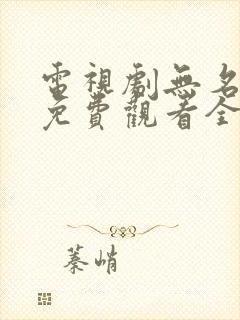 電視劇無名
免費觀看全
蓁峭